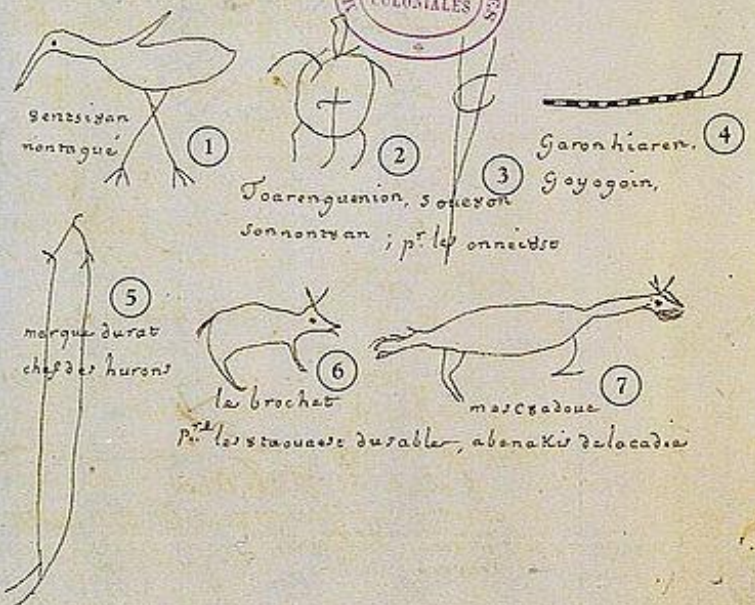 COLONIALES
8entsi8an
nontagué
1
2
3
4
Toarenguenion,
sonnont8an ; pr. les
Garonhiaren.
Goyogoin,
5
marque du rat
chef des hurons
6
le brochet
7
mesc8adoue
les du sable, abenakis de lacadie